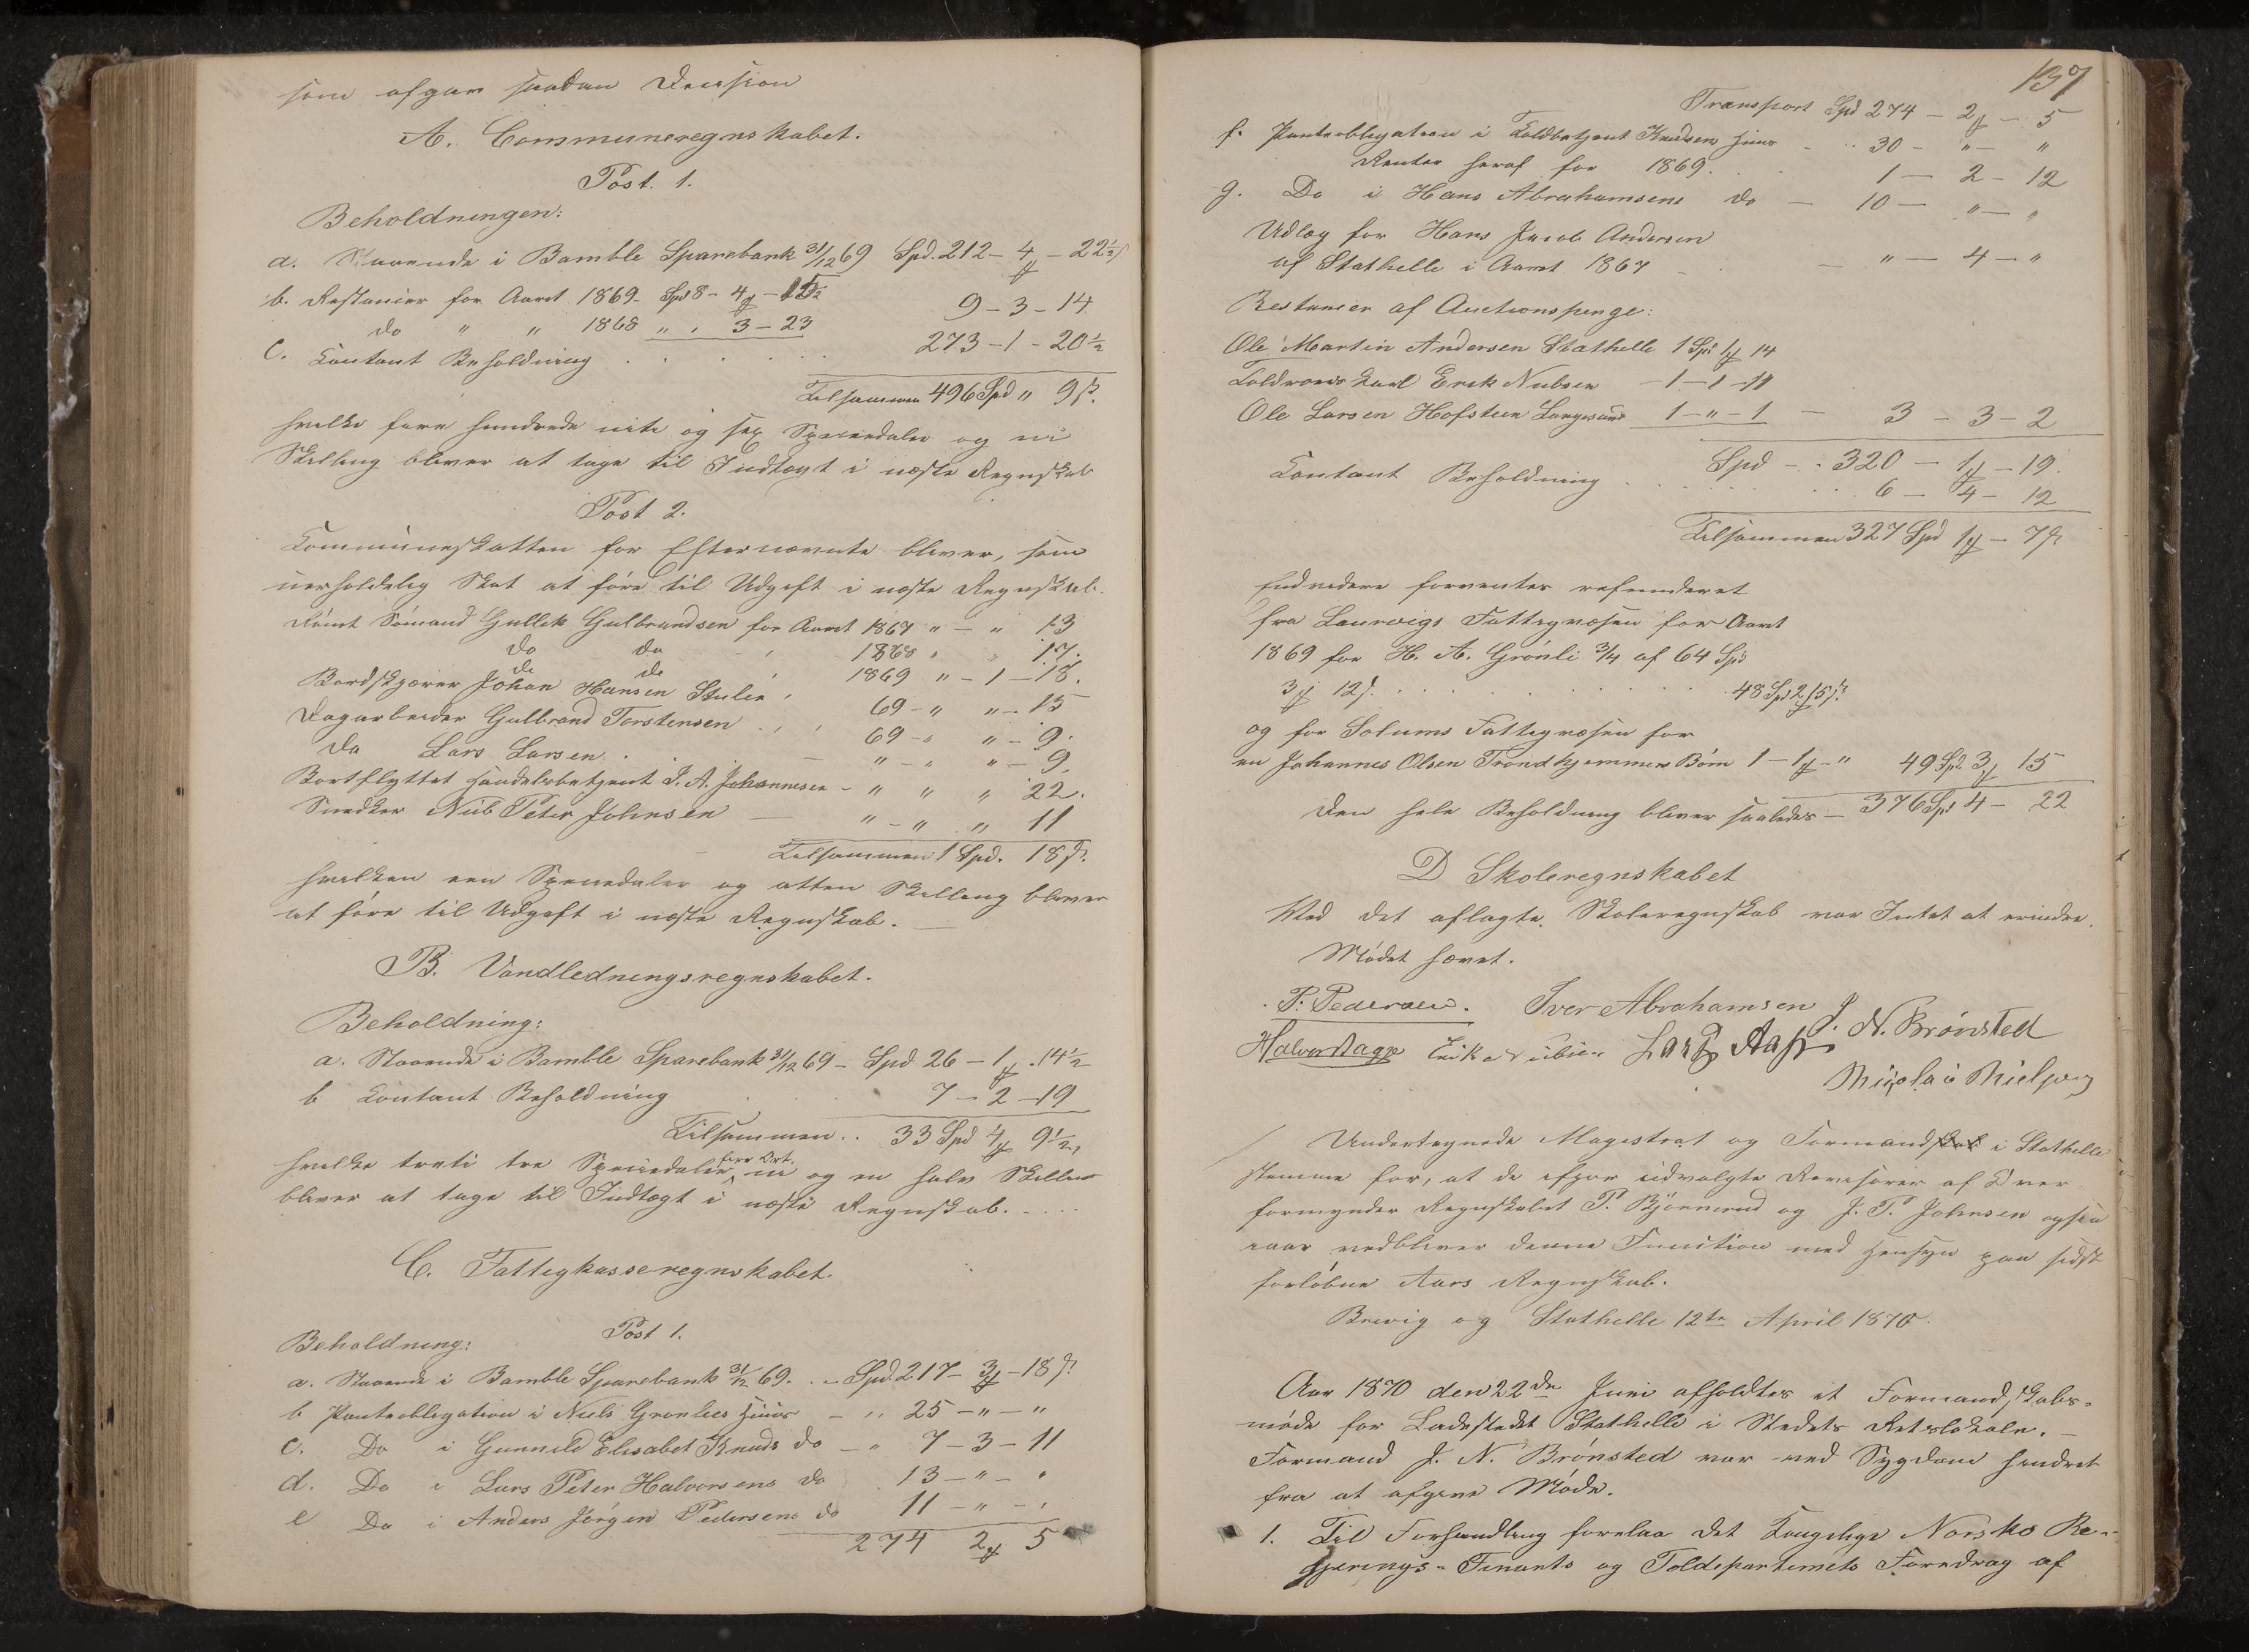 som afgav saadan Decision
A. Communeregnskabet.
Post. 1.
Beholdningen:
a. Staaende i Bamble Sparebank 31/12 69 Spd. 212 - 4 - 22½
b. Restancier for Aaret 1869 - Spd 8 - 4 - 15
do " " 1868 " " 3 - 23 9 - 3 - 14
c. Contant Beholdning 273 - 1 - 20½
Tilsammen 496 Spd " 9 ß.
hvilke fire hundrede niti og sex Speciedaler og ni
Skilling bliver at tage til Indtægt i næste Regnskab
Post 2.
Kommuneskatten for Efternævnte bliver, som
uerholdelig Skat at føre til Udgift i næste Regnskab.
Rømt Sømand Gullek Gulbrandsen for Aaret 1867 " - " 13
do do 1868 " " 17.
do do 1869 " - 1 - 18.
Bordskjærer Johan Hansen Stulen " 69 - " " - 15
Dagarbeider Gulbrand Torstensen 69 - " " - 9.
Do Lars Larsen " - " " - 9.
Bortflyttet Handelsbetjent J. A. Johannesen - " " " 22.
Snedker Niels Peter Johnsen " - " " 11
Tilsammen 1 Spd. 18 ß.
hvilken een Speciedaler og atten Skilling bliver
at føre til Udgift i næste Regnskab.
B. Vandledningsregnskabet.
Beholdning:
a. Staaende i Bamble Sparebank 31/12 69 - Spd 26 - 1 - 14½
b Contant Beholdning 7 - 2 - 19
Tilsammen .. 33 Spd 4 9½
hvilke treti tre Speciedaler fire Ort ni og en halv Skilling
bliver at tage til Indtægt i næste Regnskab.
C. Fattigkasseregnskabet.
Post 1.
Beholdning:
a. Staaende i Bamble Sparebank 31/12 69. - Spd. 217 - 3 - 18 ß
b Panteobligation i Niels Grønlies Huus - " 25 - " - "
c. Do i Gunnild Elisabet Knuds do - " 7 - 3 - 11
d. Do i Lars Peter Halvorsens do 13 - " - "
e Do i Anders Jørgen Pedersens do 11 - " - "
274 2 5
137
Transport Spd 274 - 2 - 5
f. Panteobligation i Toldbetjent Knudsens Huus - 30 - " - "
Renter heraf for 1869 1 - 2 - 12
g. Do i Hans Abrahamsens do - 10 - " - "
Udlæg for Hans Jacob Andersen
af Stathelle i Aaret 1867 - " - 4 - "
Restancier af Auctionspenge:
Ole Martin Andersen Stathelle 1 Spd 1 14
Toldroerskarl Erik Nielsen - 1 - 1 - 11
Ole Larsen Hofsteen Langesund 1 - " - 1 - 3 - 3 - 2
Spd - 320 - 1 - 19.
Contant Beholdning 6 - 4 - 12
Tilsammen 327 Spd 1 - 7 ß
Endvidere forventes refunderet
fra Laurvigs Fattigvæsen for Aaret
1869 for H. A. Grønli 3/4 af 64 Spd
3 12 ß. 48 Spd 2 15 ß
og for Solums Fattigvæsen for
en Johannes Olsen Trondhjemmens Børn 1 - 1 - " 49 Sp. 3 15
Den hele Beholdning bliver saaledes - 376 Spd 4 - 22
D Skoleregnskabet
Ved det aflagte Skoleregnskab var Intet at erindre.
Mødet hævet.
P. Pedersen. Iver Abrahamsen J. N. Brønsted
Halvor Aage Erik Nielsen Lars Aas
Nicolai Nielsen
Undertegnede Magistrat og Formandskab i Stathelle
stemme for, at de ifjor udvalgte Revisorer af Over-
formynder Regnskabet P. Bjønnerud og J. P. Johnsen ogsaa
iaar vedbliver denne Function med Hensyn paa sidst
forløbne Aars Regnskab.
Brevig og Stathelle 12te April 1870.
Aar 1870 den 22de Juni afholdtes et Formandskabs-
møde for Ladestedet Stathelle i Stedets Retslokale. -
Formand J. N. Brønsted var ved Sygdom hindret
fra at afgive Møde.
1. Til Forhandling forelaa det Kongelige Norske Re-
gjerings - Finants og Tolddepartements Foredrag af